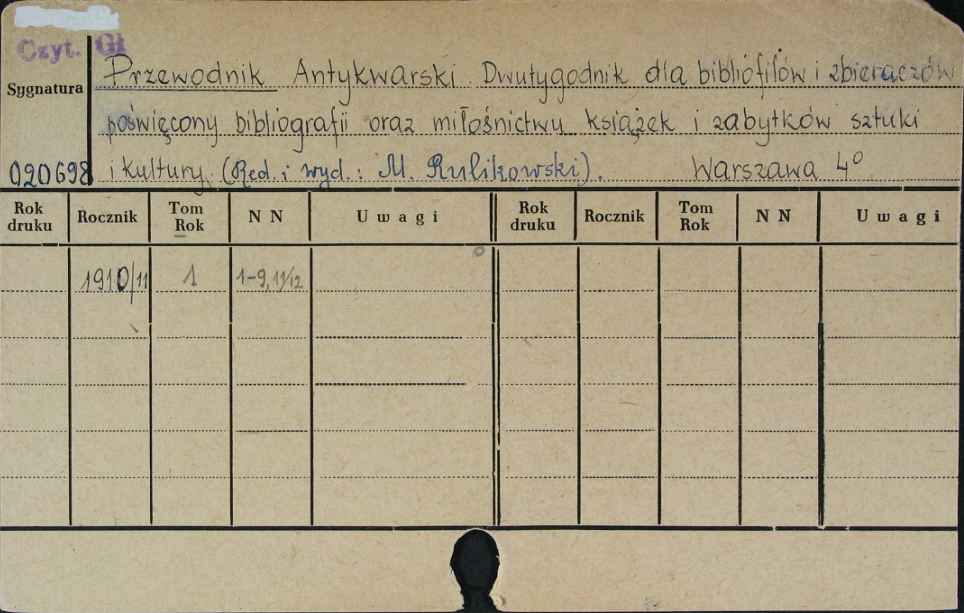 Czyt. Gł
Przewodnik Antykwarski. Dwutygodnik dla bibliofilów i zbieraczów
Sygnatura
poświęcony bibliografii oraz miłośnictwu książek i zabytków sztuki
020698 i kultury. (Red. i wyd.: M. Rulikowski). Warszawa 4°
Rok druku Rocznik Tom Rok N N Uwagi Rok druku Rocznik Tom Rok N N Uwagi
1910/11 1 1-9, 11/12